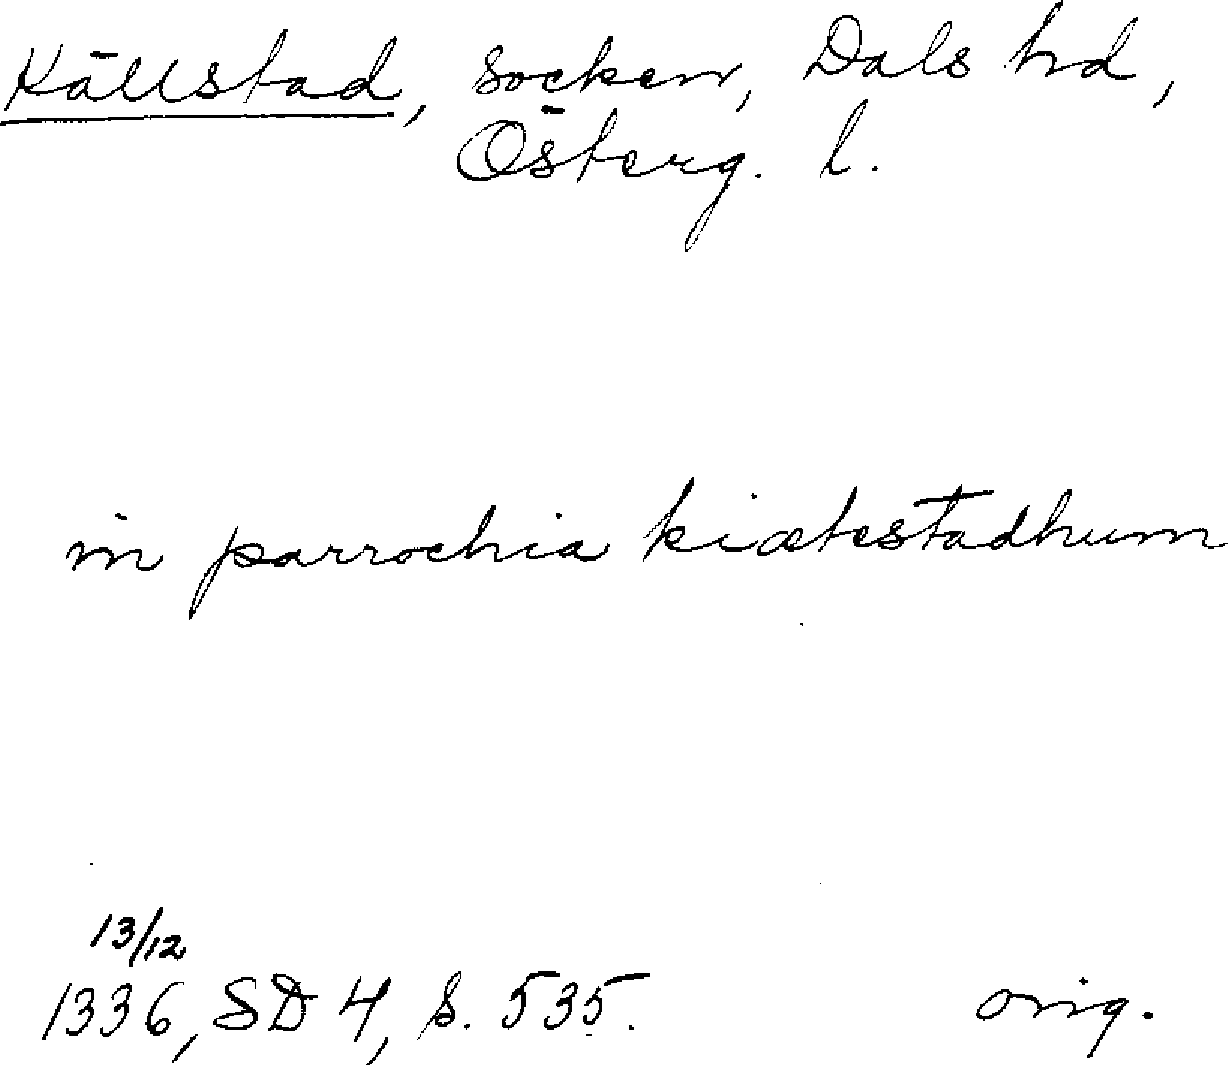 Källstad, socken, Dals hd,
Österg. l.
in parrochia kiætestadhum
13/12
1336, SD 4, s. 535.
orig.